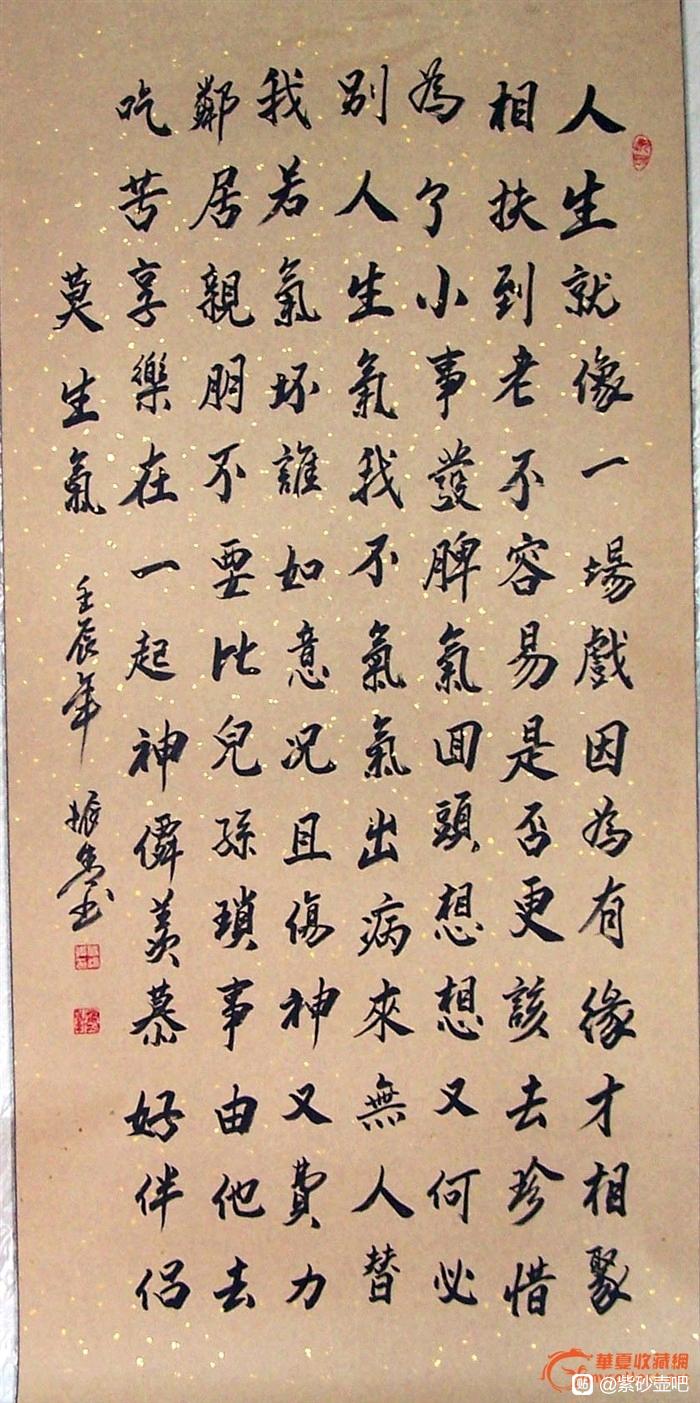 人生就像一場戲因為有緣才相聚
相扶到老不容易是否更該去珍惜
為了小事發脾氣回頭想想又何必
別人生氣我不氣氣出病來無人替
我若氣坏誰如意况且傷神又費力
鄰居親朋不要比兒孫瑣事由他去
吃苦享樂在一起神僊羡慕好伴侣
莫生氣
壬辰年
華夏收藏網
@紫砂壶吧